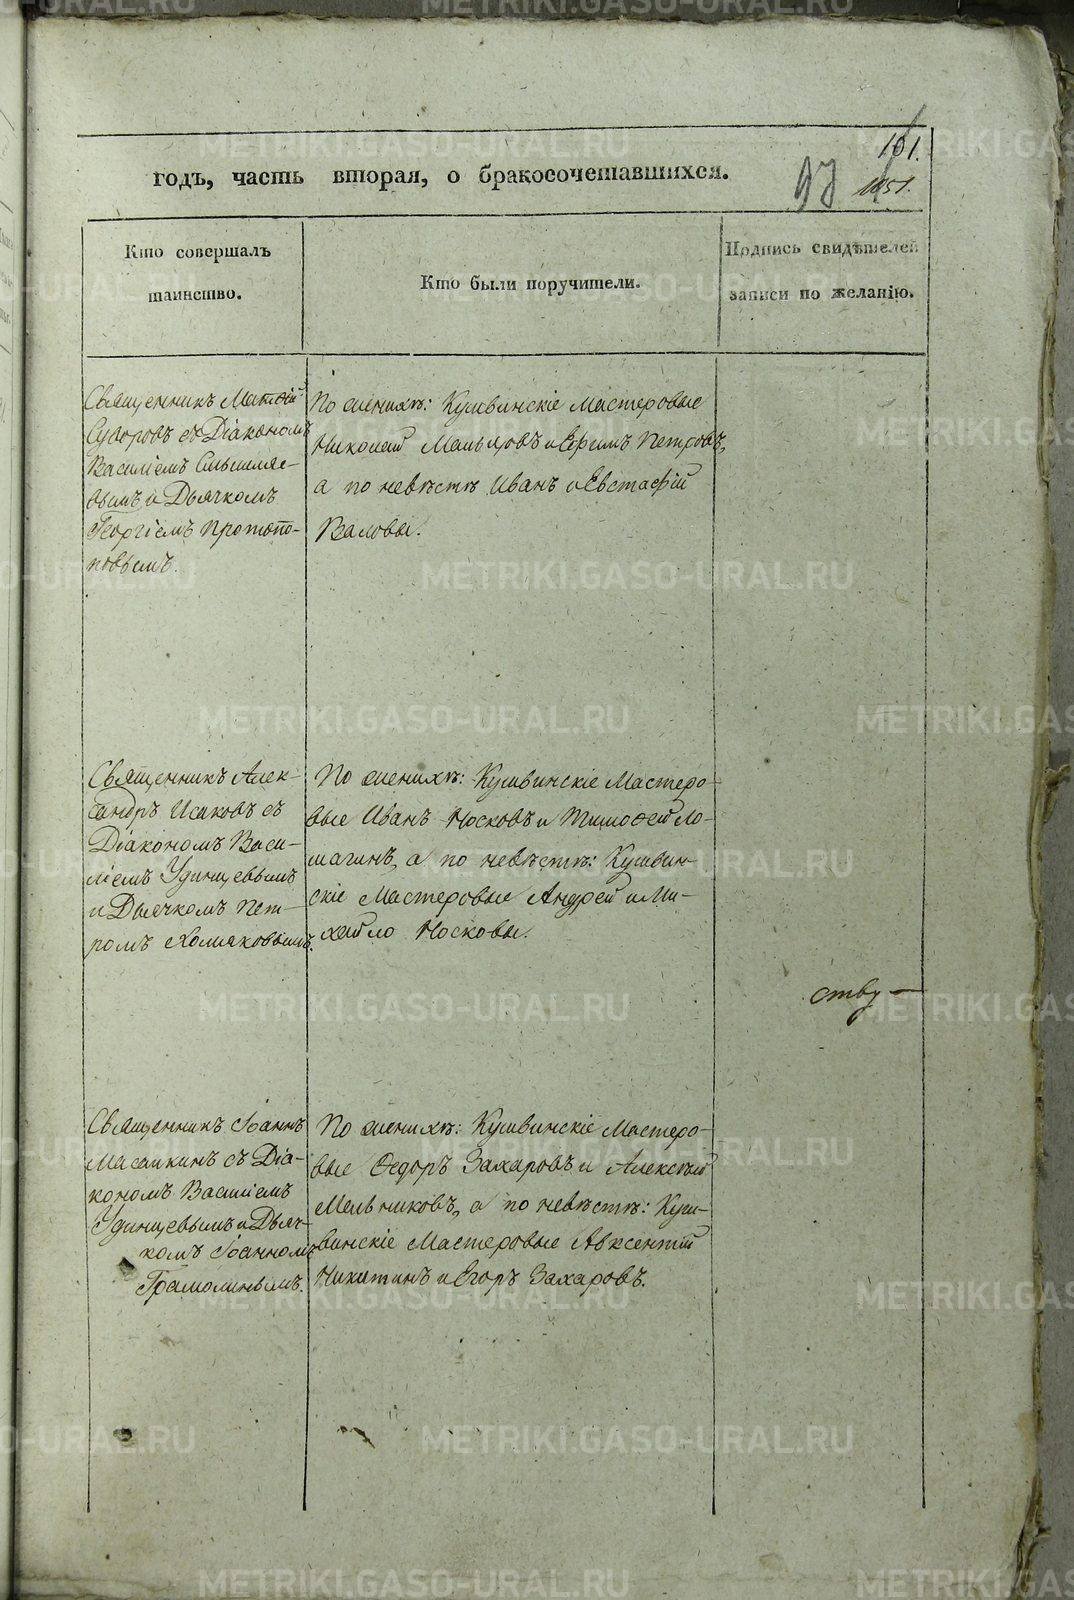 годъ, часть вторая, о бракосочетавшихся.
161.
97
1851.
Кто совершалъ
таинство.
Кто были поручители.
Подпись свидѣтелей
записи по желанію.
Священникъ Матѳій
Суворовъ съ Діакономъ
Василіемъ
и Дьячкомъ
Георгіемъ Протопо-
повымъ.
По женихѣ: Кушвинскіе Мастеровые
Николай и Ефимъ Петровъ,
а по невѣстѣ Иванъ и Евстафій
Валовы.
Священникъ Алек-
сандръ Исаковъ съ
Діакономъ Васи-
ліемъ Удинцевымъ
и Дьячкомъ Пет-
ромъ Хомяковымъ.
По женихѣ: Кушвинскіе Мастеро-
вые Иванъ Носковъ и Тимоѳей Ло-
магинъ, а по невѣстѣ: Кушвин-
скіе Мастеровые Андрей и Ми-
хайло Носковы.
ству-
Священникъ Іоаннъ
съ Діа-
кономъ Василіемъ
Удинцевымъ и Дьяч-
комъ Іоанномъ
Грамолинымъ.
По женихѣ: Кушвинскіе Мастеро-
вые Ѳедоръ Захаровъ и Алексѣй
Мельниковъ, а по невѣстѣ: Куш-
винскіе Мастеровые Авксентій
Никитинъ и Егоръ Захаровъ.
METRIKI.GASO-URAL.RU